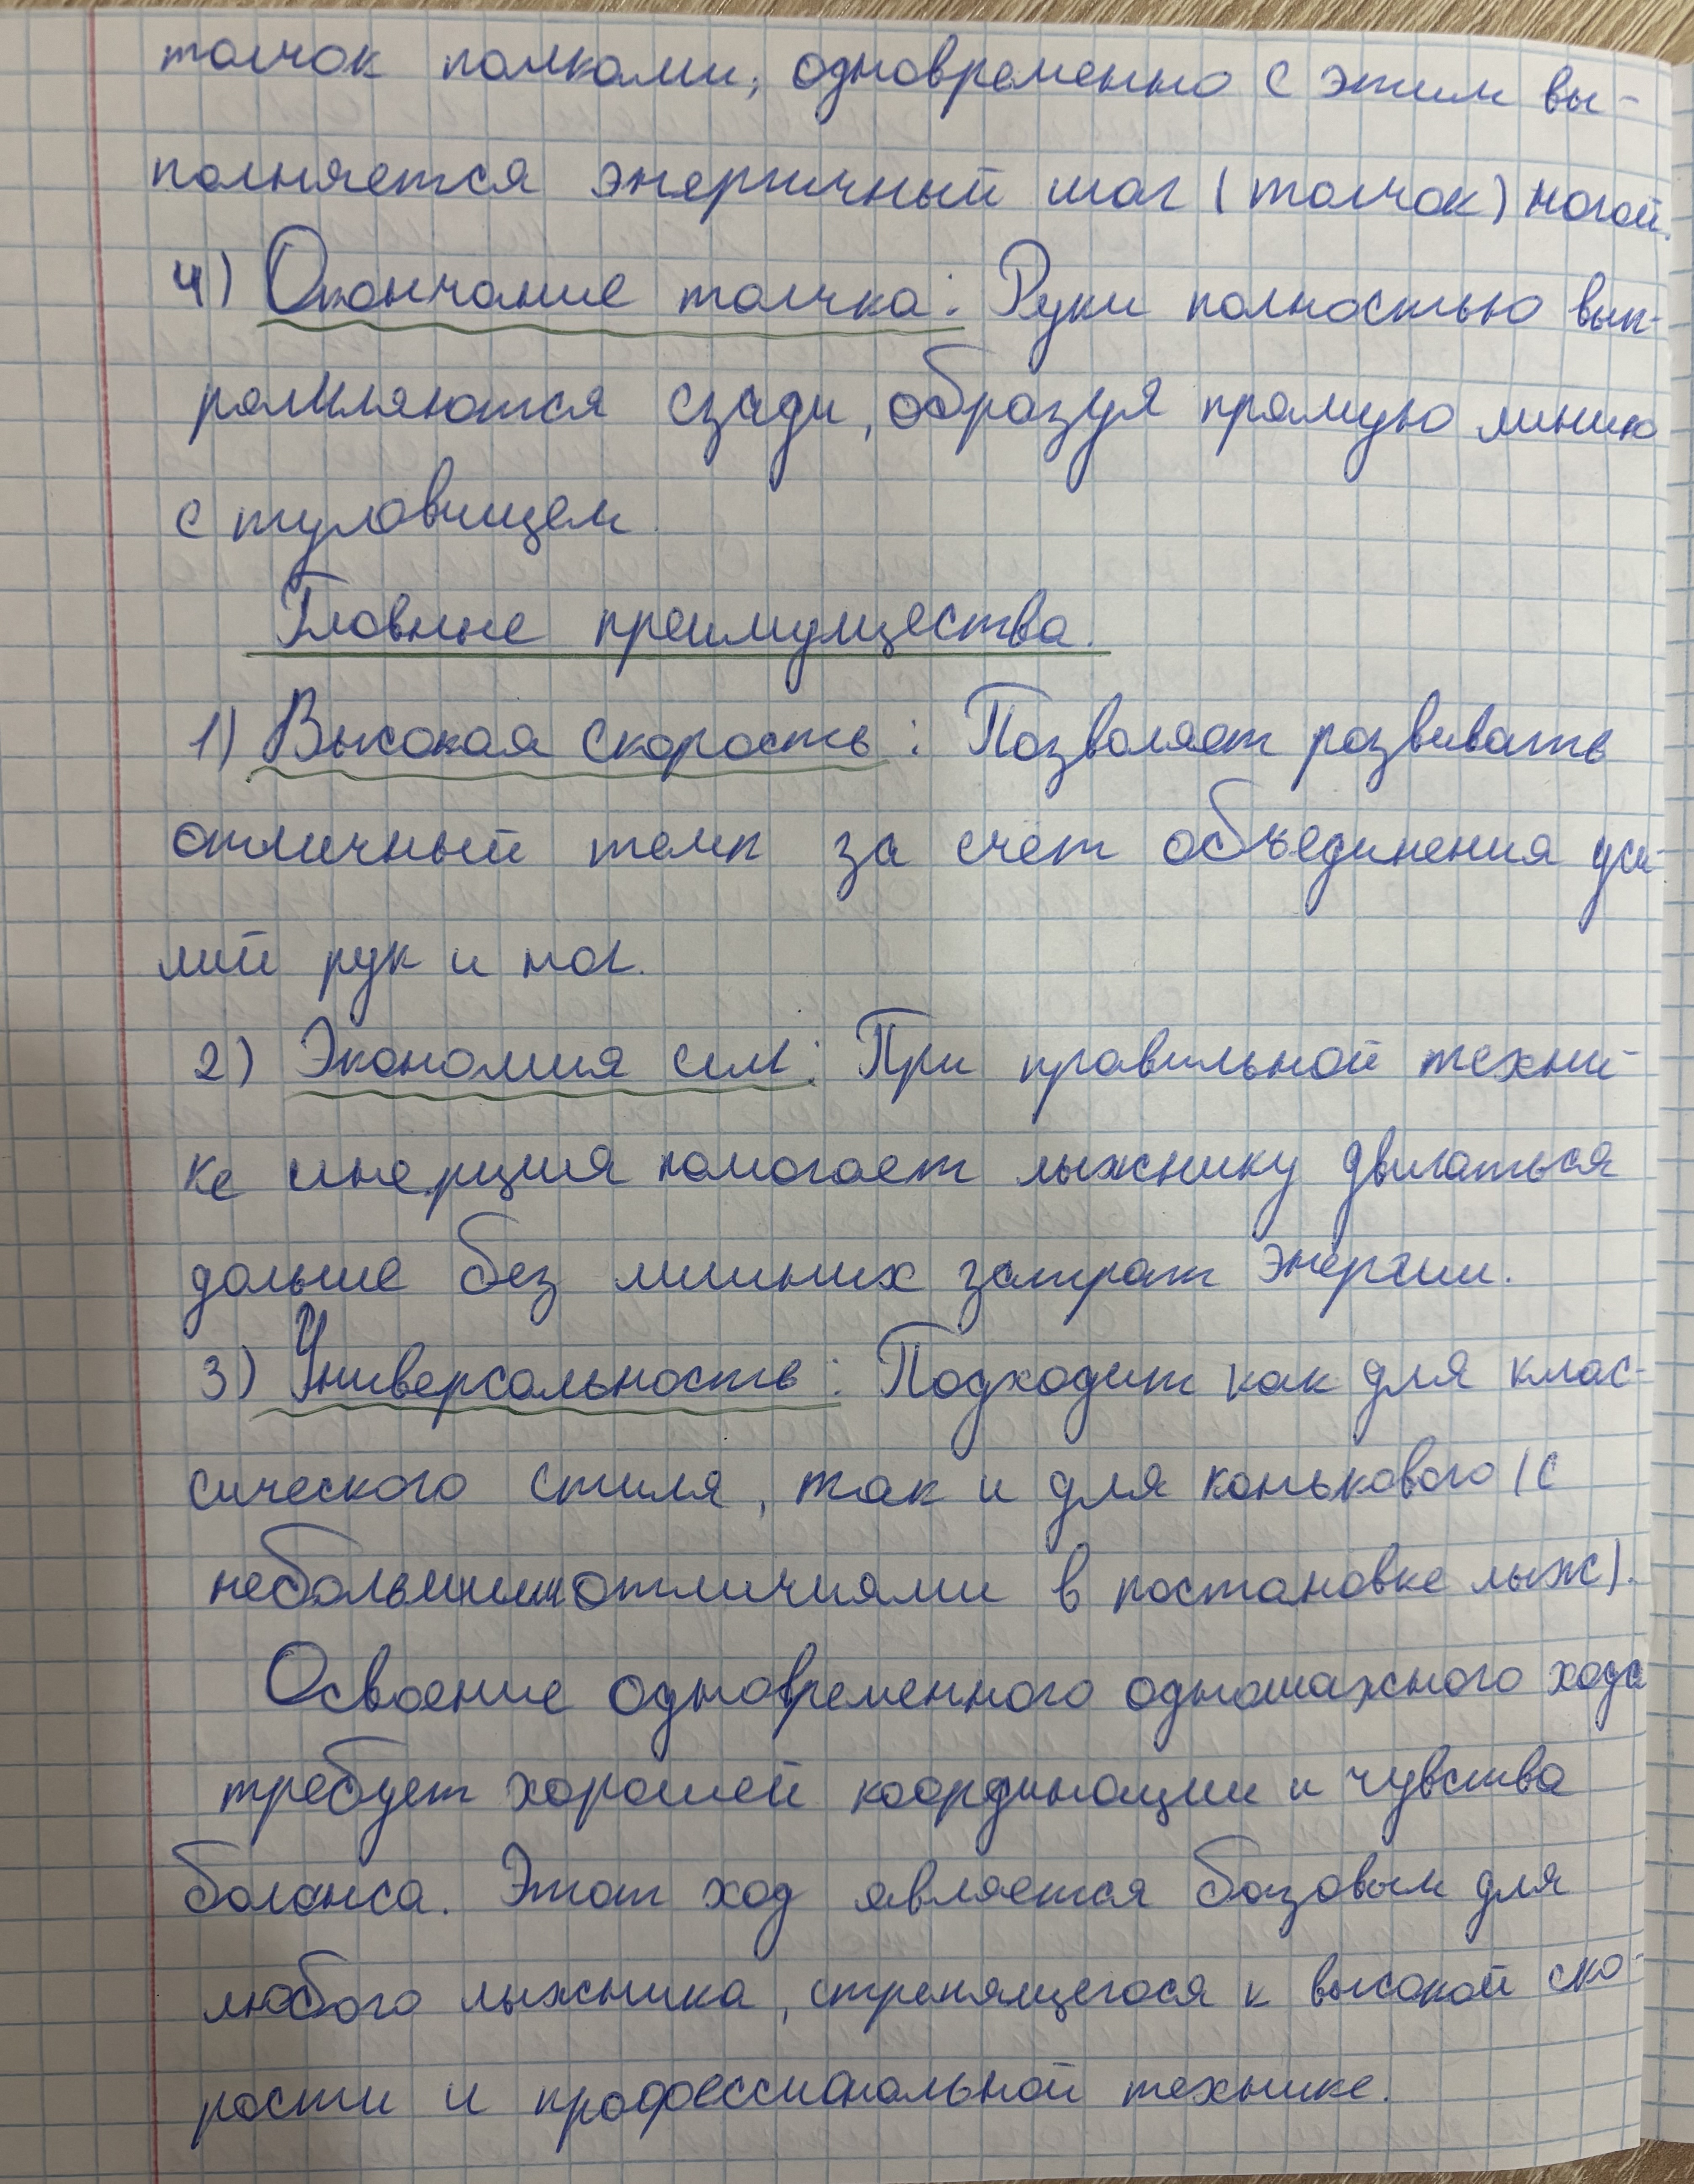 толчок палками, одновременно с этим вы-
полняется энергичный шаг (толчок) ногой.
4) Окончание толчка: Руки полностью вып-
рямляются сзади, образуя прямую линию
с туловищем.
Главные преимущества.
1) Высокая скорость: Позволяет развивать
отличный темп за счёт объединения уси-
лий рук и ног.
2) Экономия сил: При правильной техни-
ке инерция помогает лыжнику двигаться
дольше без лишних затрат энергии.
3) Универсальность: Подходит как для клас-
сического стиля, так и для конькового (с
небольшими отличиями в постановке лыж).
Освоение одновременного одношажного хода
требует хорошей координации и чувства
баланса. Этот ход является базовым для
любого лыжника, стремящегося к высокой ско-
рости и профессиональной технике.